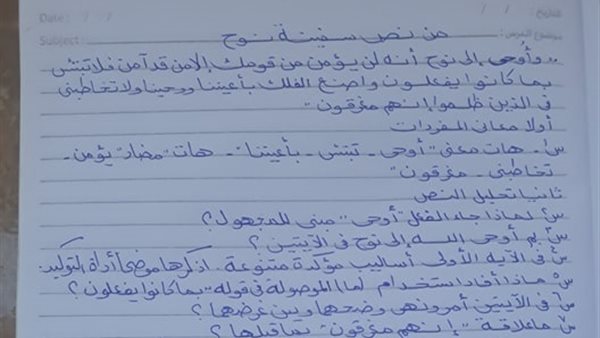 التاريخ: / / Date: / /
موضوع الدرس: Subject:
من نص سفينة نوح
"وأُوحى إلى نوح أنه لن يؤمن من قومك إلا من قد آمن فلا تبتئس
بما كانوا يفعلون واصنع الفلك بأعيننا ووحينا ولا تخاطبنى
فى الذين ظلموا إنهم مغرقون"
أولا معانى المفردات
س١- هات معنى "أوحى - تبتئس - بأعيننا" - هات "مضاد" يؤمن -
تخاطبنى - مغرقون"
ثانيا تحليل النص
س٢ لماذا جاء الفعل "أوحى" مبنى للمجهول؟
س٣ بم أوحى الله إلى نوح فى الآيتين؟
س٤ فى الآيه الأولى أساليب مؤكدة متنوعة. اذكرها موضحا أداة التوكيد.
س٥ ماذا أفاد استخدام "ما" الموصوله فى قوله "بما كانوا يفعلون؟
س٦ فى الآيتين أمر ونهى وضحهما وبين غرضهما؟
س٧ ما علاقة "إنهم مغرقون" بما قبلها؟